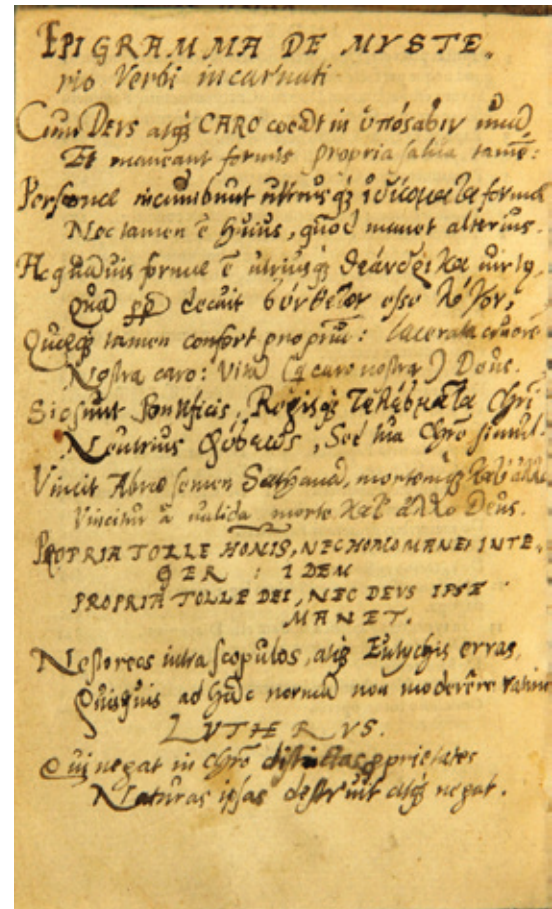 EPIGRAMMA DE MYSTE-
rio Verbi incarnati
Cum DEVS atqȝ CARO in
Et maneant formis propria salua tamē:
Personae incumbunt utriusqȝ ἰδιώματα formae
Nec tamen ē huius, quod manet alterius.
Ac quauis formae ē utriusqȝ
decuit esse
tamen confert propriū: lacerata cruore
Nostra caro: Vitā (ꝗ caro nostra) Deus.
Sic sunt Pontificis, Regisqȝ Chrī
Neutrius φύσεως, Sed Chrō simul.
Vincit Abrae semen Sathanā, mortemqȝ κατ' ἄλλο
Vincitur a ualida morte κατ' ἄλλο Deus.
PROPRIA TOLLE HOMIS, NEC HOMO MANET INTE-
GER : IDEM
PROPRIA TOLLE DEI, NEC DEVS IPSE
MANET.
Nestoreos intra scopulos, atqȝ Eutychis erras,
Quisquis ad hāc normā non
LVTHERVS.
Qui negat in Chrō distinctas ꝓprietates
Naturas ipsas destruit atqȝ negat.